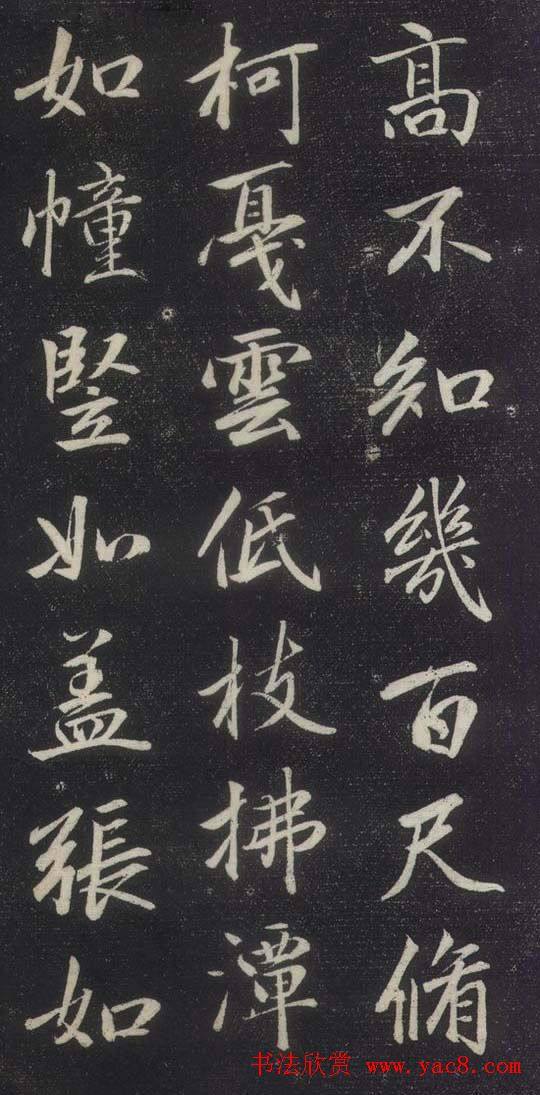 高不知幾百尺脩
柯戛雲低枝拂潭
如幢豎如盖張如
书法欣赏 www.yac8.com